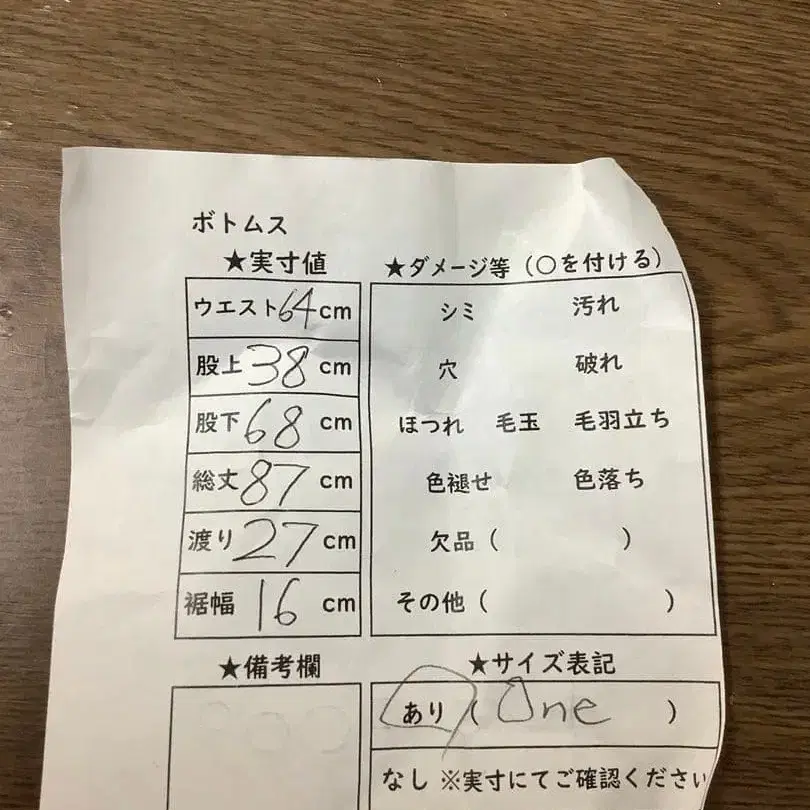 ボトムス
★実寸値
ウエスト64cm
股上38cm
股下68cm
総丈87cm
渡り27cm
裾幅16cm
★ダメージ等（〇を付ける）
シミ 汚れ
穴 破れ
ほつれ 毛玉 毛羽立ち
色褪せ 色落ち
欠品（ ）
その他（ ）
★備考欄
★サイズ表記
あり（One ）
なし ※実寸にてご確認ください